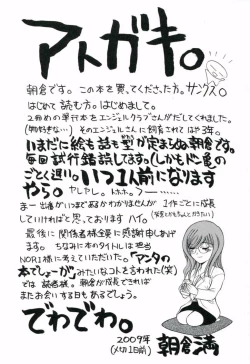 アトガキ。
朝倉です。この本を買ってくださった方。サンクス。
はじめて読む方。はじめまして。
2冊めの単行本をエンジェルクラブさんがだしてくれました。
(物好きな…) そのエンジェルさんに飼育されてはや3年。
いまだに絵も話も型が定まらぬ朝倉です。
毎回試行錯誤してます。(しかもドン亀の
ごとく遅い。いつ1人前になります
やら。ヤレヤレ。トホホ。フー……
まー 出番がいつまであるかわかりませんが 1作ごとに成長
していければと思っております ハイ。
最後に関係者様全員に感謝申しあげ
ます。ちなみに本のタイトルは担当
NORI様に考えていただいた。「マンタの
本でしょーが」みたいなコトを言われた(笑)
では読者様。朝倉が成長できれば
またお会いする日もあるでしょう。
でわでわ。
2009年
(〆切1日前)
朝倉満